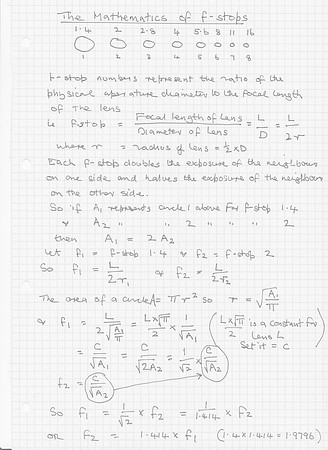 The Mathematics of f-stops
1.4 2 2.8 4 5.6 8 11 16
1 2 3 4 5 6 7 8
f-stop numbers represent the ratio of the
physical aperature diameter to the focal length
of the lens
ie f-stop = Focal length of Lens / Diameter of Lens = L/D = L/2r
where r = radius of lens = ½ x D
Each f-stop doubles the exposure of the neighbour
on one side and halves the exposure of the neighbour
on the other side.
So if A1 represents circle 1 above for f-stop 1.4
& A2 " 2 " " " 2
then A1 = 2A2
let f1 = f-stop 1.4 & f2 = f-stop 2
So f1 = L/2r1 & f2 = L/2r2
The area of a circle A = πr² so r = √(A/π)
& f1 = L/2√(A1/π) = L x √π/2 x 1/√A1
(L x √π/2 is a constant for Lens L Set it = C)
= C/√A1 = C/√2A2 = 1/√2 x C/√A2
f2 = C/√A2
So f1 = 1/√2 x f2 = 1/1.414 x f2
or f2 = 1.414 x f1 (1.4 x 1.414 = 1.9796)